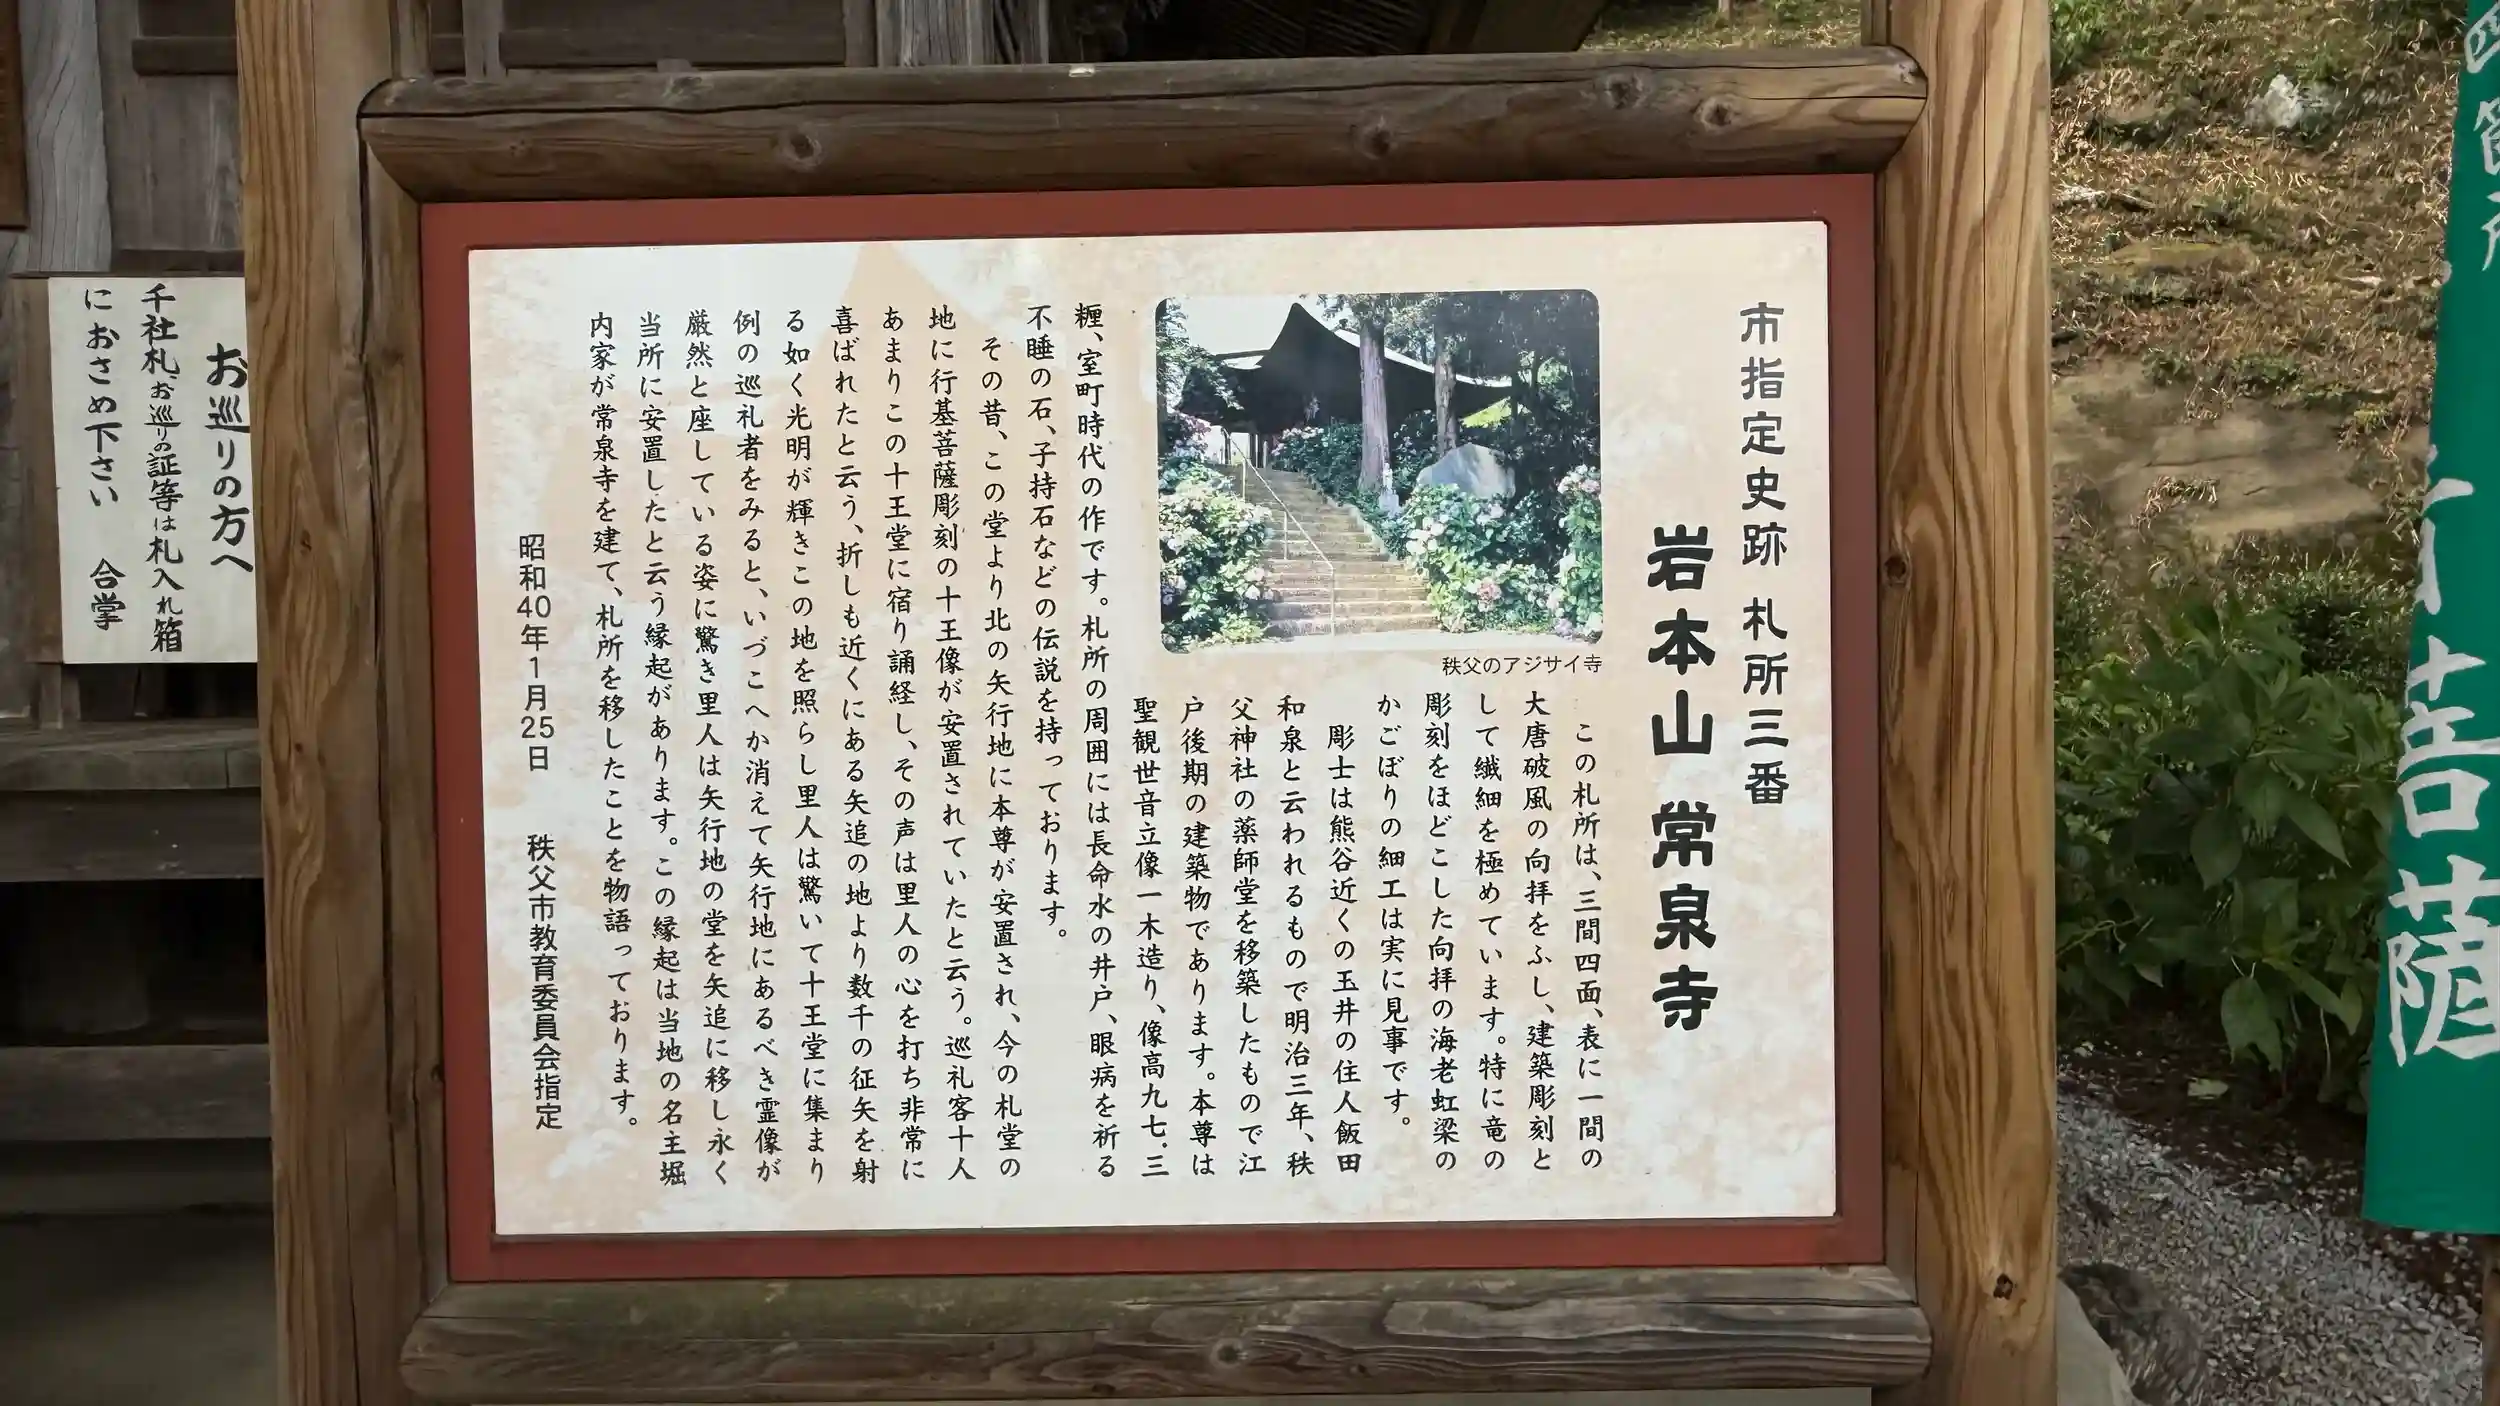 市指定史跡 札所三番
岩本山 常泉寺
秩父のアジサイ寺
この札所は、三間四面、表に一間の
大唐破風の向拝をふし、建築彫刻と
して繊細を極めています。特に竜の
彫刻をほどこした向拝の海老虹梁の
かごぼりの細工は実に見事です。
彫士は熊谷近くの玉井の住人飯田
和泉と云われるもので明治三年、秩
父神社の薬師堂を移築したもので江
戸後期の建築物であります。本尊は
聖観世音立像一木造り、像高九七・三
糎、室町時代の作です。札所の周囲には長命水の井戸、眼病を祈る
不睡の石、子持石などの伝説を持っております。
その昔、この堂より北の矢行地に本尊が安置され、今の札堂の
地に行基菩薩彫刻の十王像が安置されていたと云う。巡礼客十人
あまりこの十王堂に宿り誦経し、その声は里人の心を打ち非常に
喜ばれたと云う、折しも近くにある矢追の地より数千の征矢を射
る如く光明が輝きこの地を照らし里人は驚いて十王堂に集まり
例の巡礼者をみると、いづこへか消えて矢行地にあるべき霊像が
厳然と座している姿に驚き里人は矢行地の堂を矢追に移し永く
当所に安置したと云う縁起があります。この縁起は当地の名主堀
内家が常泉寺を建て、札所を移したことを物語っております。
昭和40年1月25日 秩父市教育委員会指定
お巡りの方へ
千社札、お巡りの証等は札入れ箱
におさめ下さい 合掌
菩薩